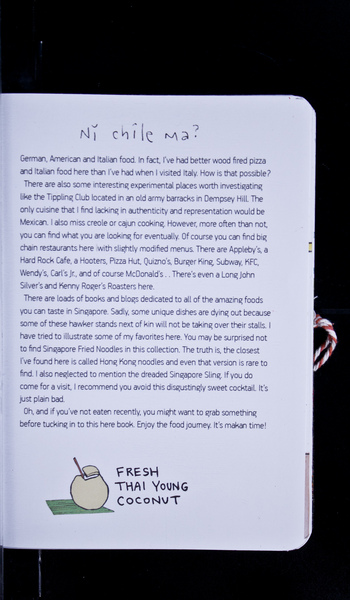 Nǐ chīle ma?
German, American and Italian food. In fact, I've had better wood fired pizza
and Italian food here than I've had when I visited Italy. How is that possible?
There are also some interesting experimental places worth investigating
like the Tippling Club located in an old army barracks in Dempsey Hill. The
only cuisine that I find lacking in authenticity and representation would be
Mexican. I also miss creole or cajun cooking. However, more often than not,
you can find what you are looking for eventually. Of course you can find big
chain restaurants here with slightly modified menus. There are Appleby's, a
Hard Rock Cafe, a Hooters, Pizza Hut, Quizno's, Burger King, Subway, KFC,
Wendy's, Carl's Jr., and of course McDonald's . . There's even a Long John
Silver's and Kenny Roger's Roasters here.
There are loads of books and blogs dedicated to all of the amazing foods
you can taste in Singapore. Sadly, some unique dishes are dying out because
some of these hawker stands next of kin will not be taking over their stalls. I
have tried to illustrate some of my favorites here. You may be surprised not
to find Singapore Fried Noodles in this collection. The truth is, the closest
I've found here is called Hong Kong noodles and even that version is rare to
find. I also neglected to mention the dreaded Singapore Sling. If you do
come for a visit, I recommend you avoid this disgustingly sweet cocktail. It's
just plain bad.
Oh, and if you've not eaten recently, you might want to grab something
before tucking in to this here book. Enjoy the food journey. It's makan time!
FRESH
THAI YOUNG
COCONUT